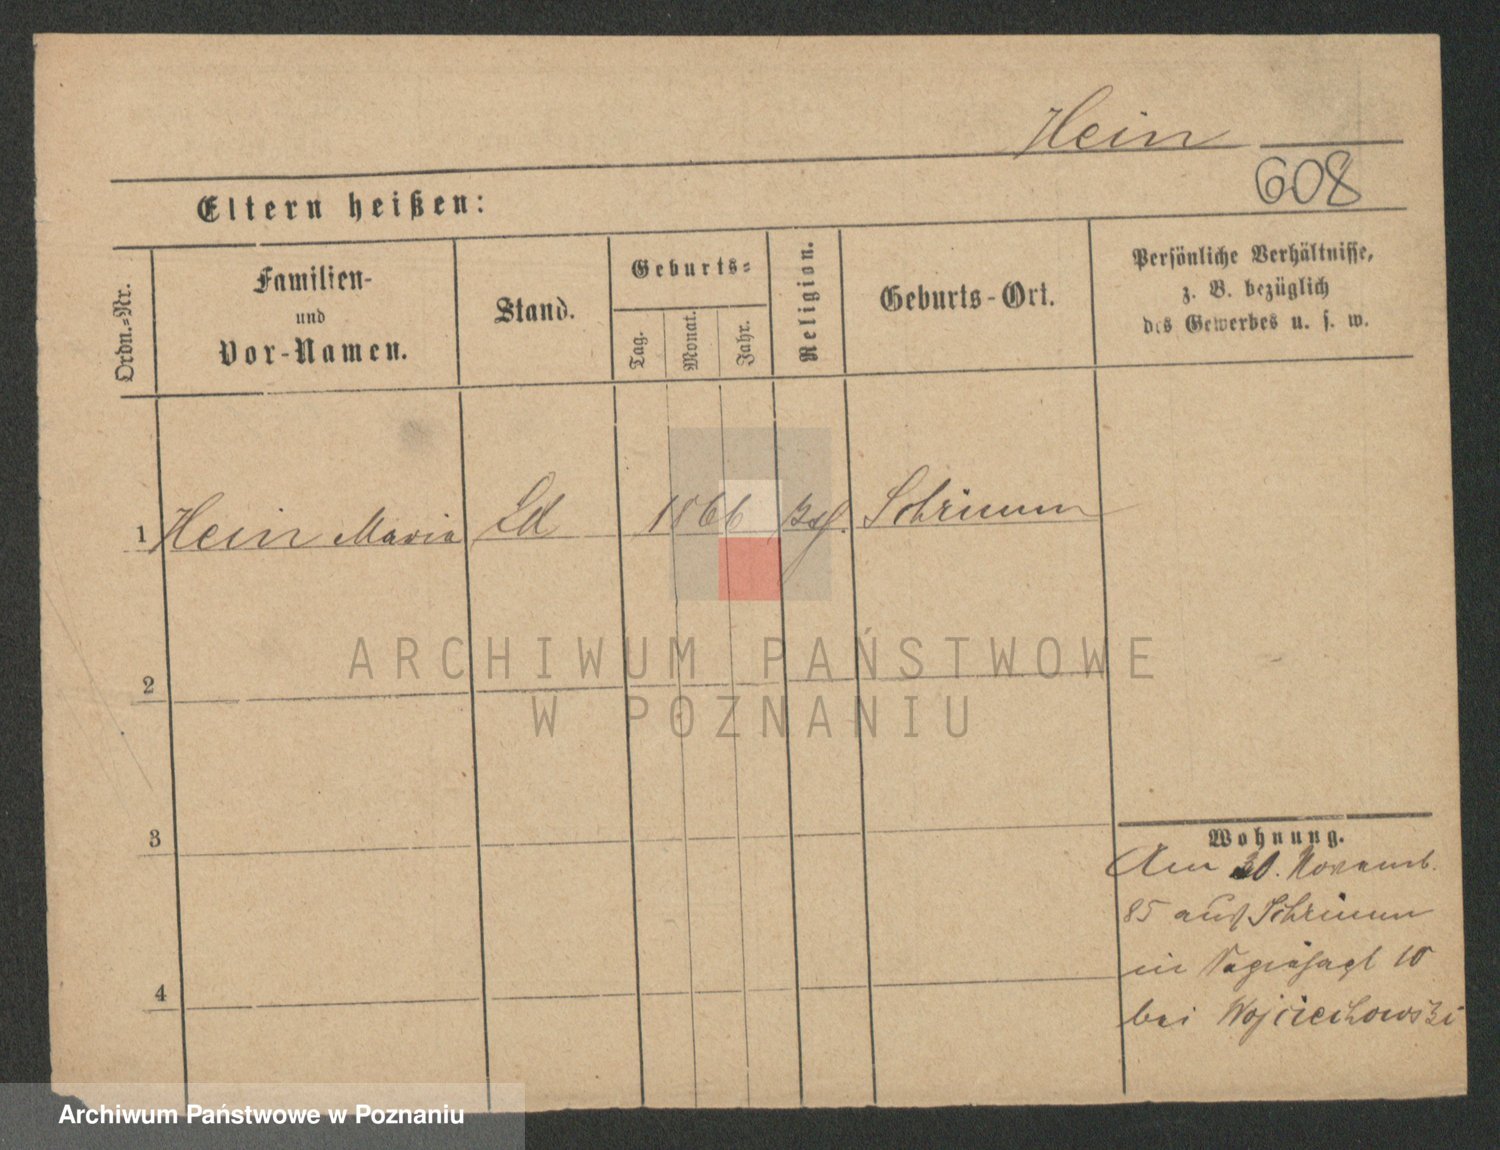 Hein
608
Eltern heißen:
Ordn.-Nr.
Familien-
und
Vor-Namen.
Stand.
Geburts-
Tag.
Monat.
Jahr.
Religion.
Geburts-Ort.
Persönliche Verhältnisse,
z. B. bezüglich
des Gewerbes u. s. w.
1 Hein Maria Ld 1866 Schrimm
2
3
4
Wohnung.
Am 30. Novemb.
85 aus Schrimm
in 10
bei Wojciechowski
ARCHIWUM PAŃSTWOWE
W POZNANIU
Archiwum Państwowe w Poznaniu